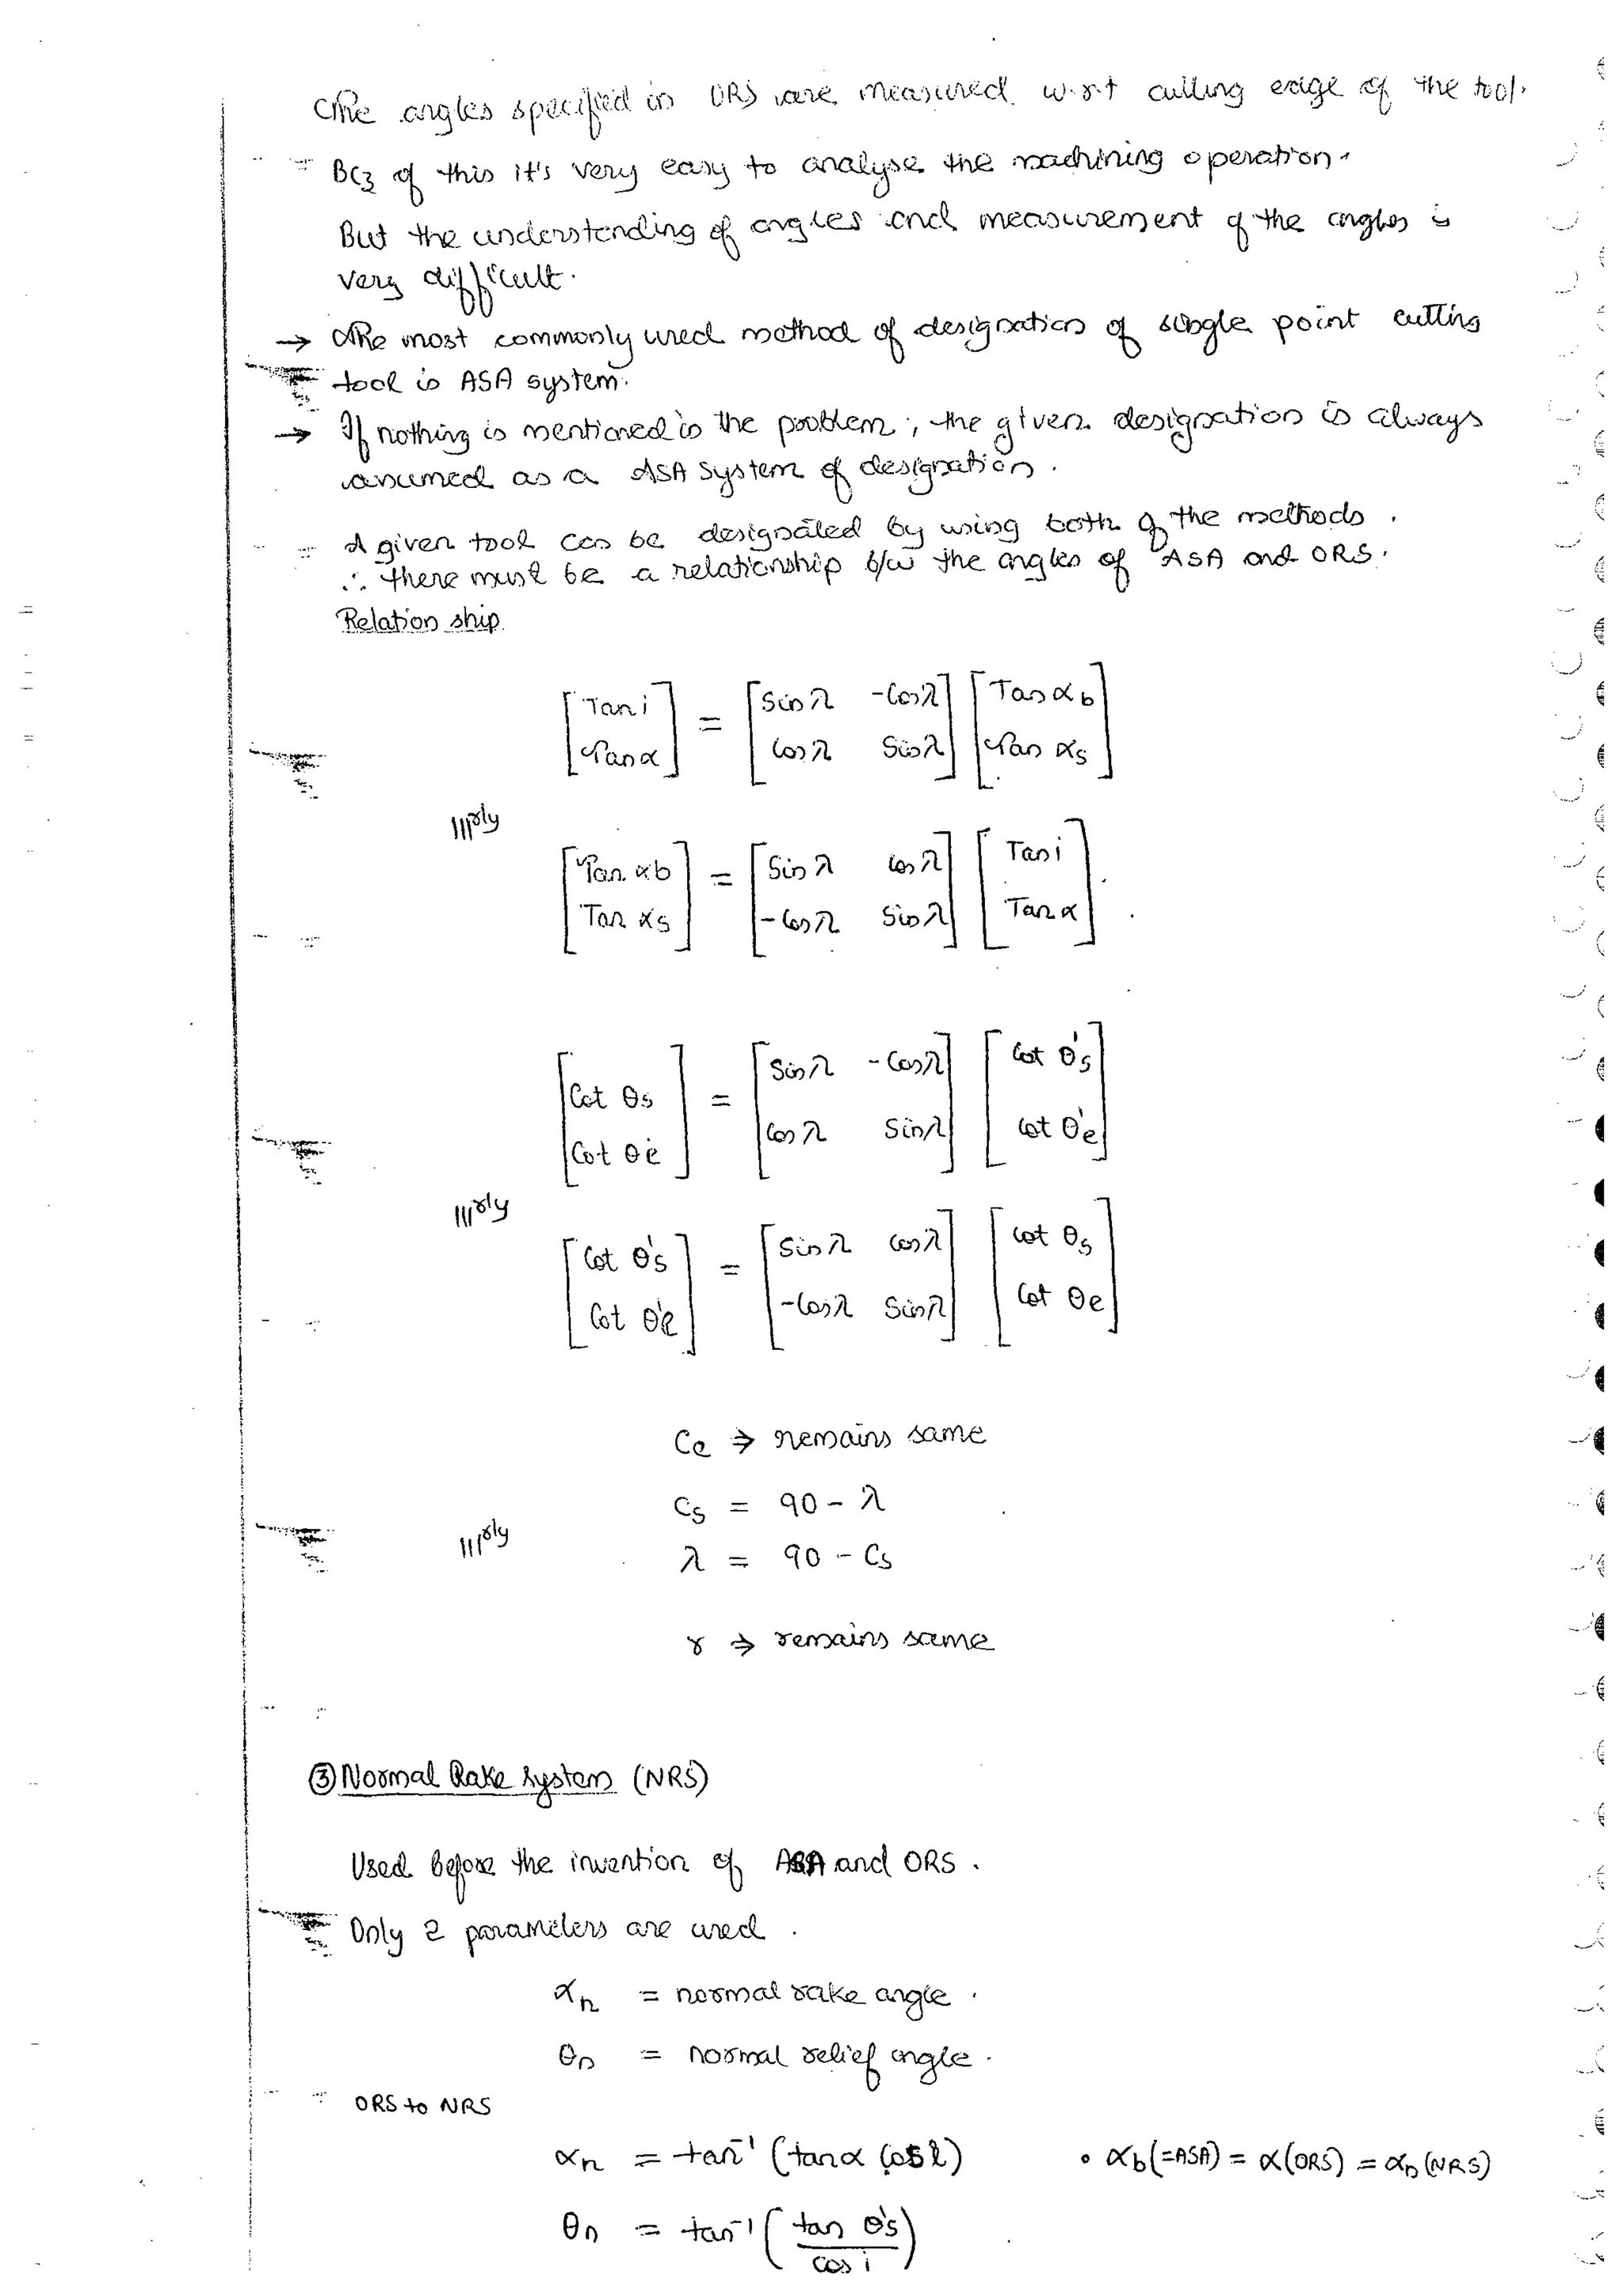 The angles specified in ORS are measured w.r.t cutting edge of the tool.
Bcz of this it's very easy to analyse the machining operation.
But the understanding of angles and measurement of the angles is
very difficult.
→ The most commonly used method of designation of single point cutting
tool is ASA system.
→ If nothing is mentioned in the problem, the given designation is always
assumed as a ASA system of designation.
A given tool can be designated by using both of the methods.
∴ there must be a relationship b/w the angles of ASA and ORS.
Relation ship
[Tan i / Tan α] = [Sin λ -Cos λ / Cos λ Sin λ] [Tan αb / Tan αs]
|||rly
[Tan αb / Tan αs] = [Sin λ Cos λ / -Cos λ Sin λ] [Tan i / Tan α].
[Cot θs / Cot θe] = [Sin λ -Cos λ / Cos λ Sin λ] [Cot θ's / Cot θ'e]
|||rly
[Cot θ's / Cot θ'e] = [Sin λ Cos λ / -Cos λ Sin λ] [Cot θs / Cot θe]
Ce ⇒ remains same
Cs = 90 - λ
|||rly λ = 90 - Cs
r ⇒ remains same
③ Normal Rake System (NRS)
Used before the invention of ASA and ORS.
Only 2 parameters are used.
αn = normal rake angle.
θn = normal relief angle.
ORS to NRS
αn = tan⁻¹ (tan α cos i) • αb(=ASA) = α(ORS) = αn(NRS)
θn = tan⁻¹ (tan θ's / cos i)